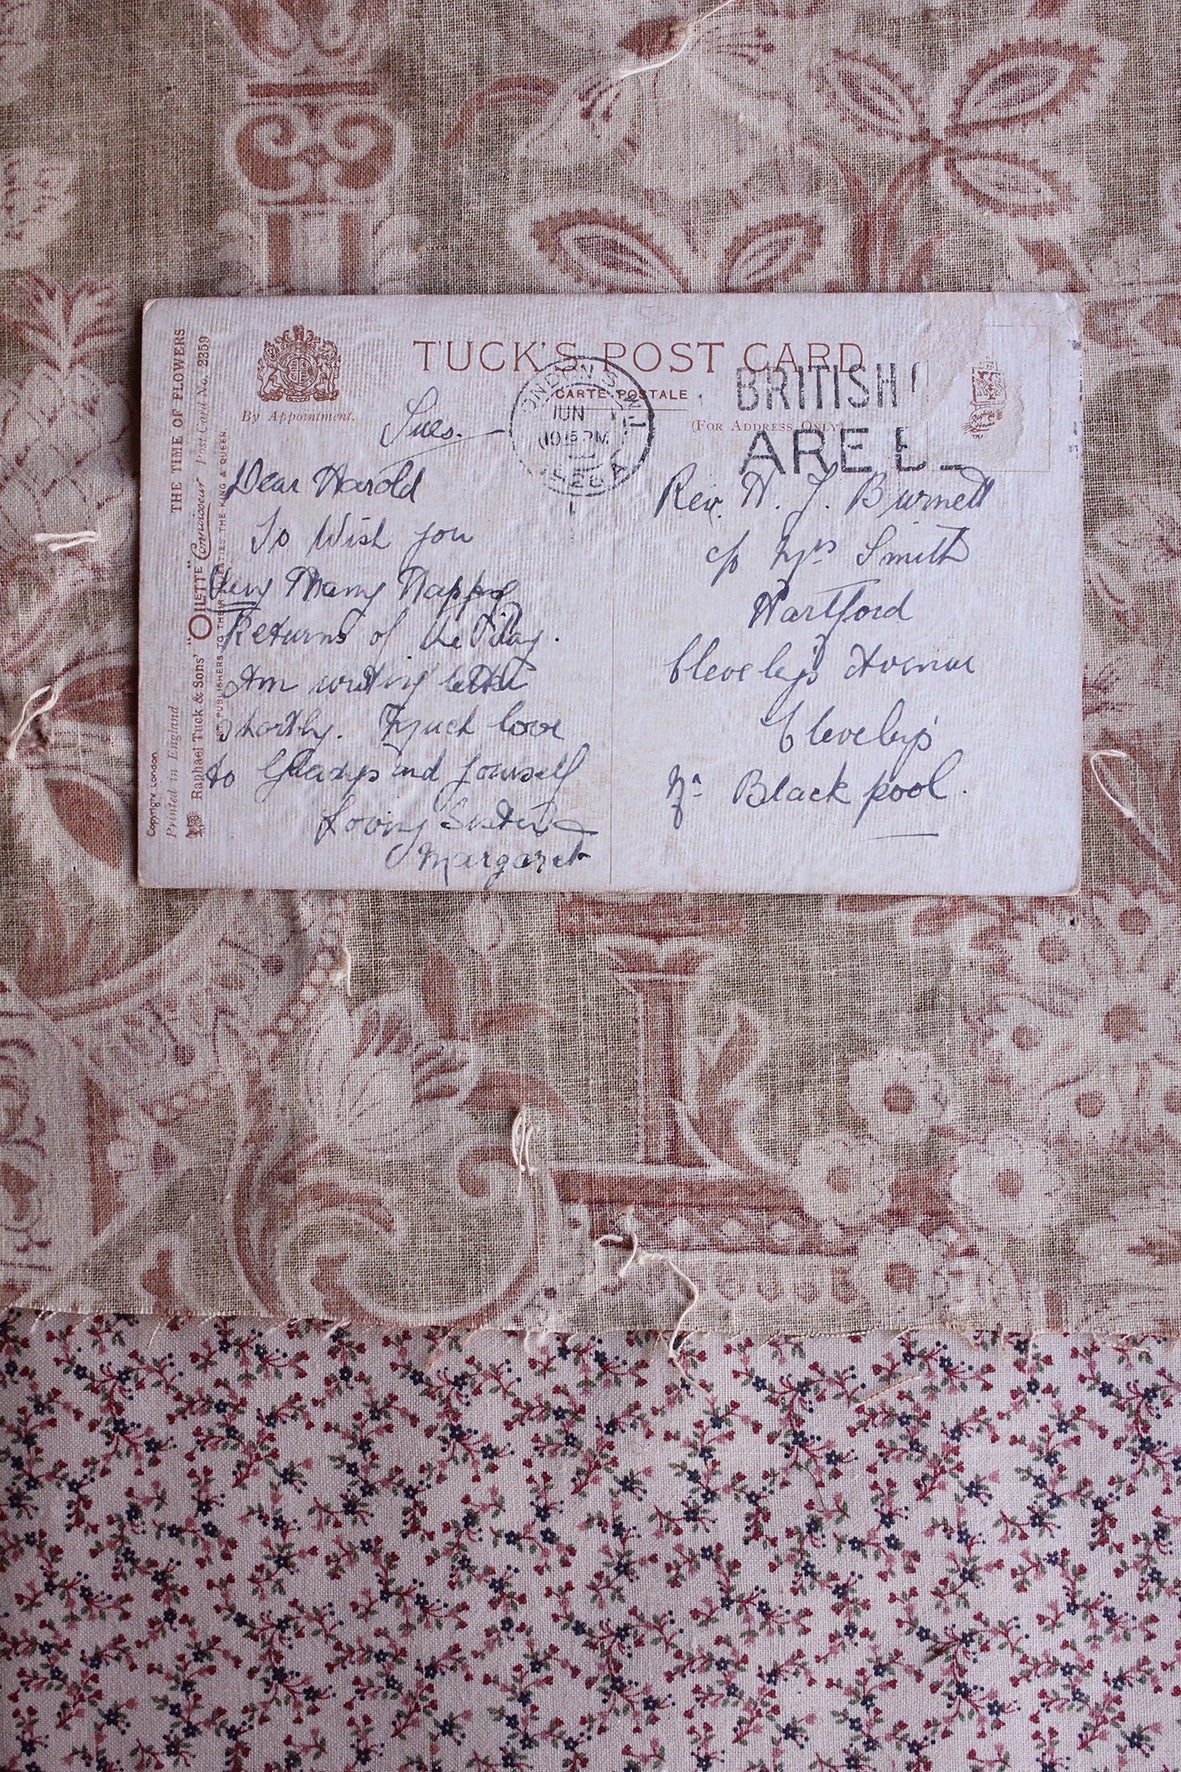 TUCK'S POST CARD
CARTE POSTALE
(FOR ADDRESS ONLY
By Appointment.
THE TIME OF FLOWERS
Raphael Tuck & Sons' "OILETTE" Connoisseur Post Card No. 2359
PUBLISHERS TO THEIR MAJESTIES THE KING & QUEEN
Printed in England
Copyright London
LONDON S.W.1
JUN
10 15 PM
BRITISH
ARE
Tues.
Dear Harold
To Wish you
Very Many Happy
Returns of the Day.
Am writing letter
shortly. Much love
to Gladys and yourself
Loving Sister
Margaret
Rev. H. J. Burnett
c/o Mrs Smith
Hartford
Cleveleys Avenue
Cleveleys
Nr Blackpool.